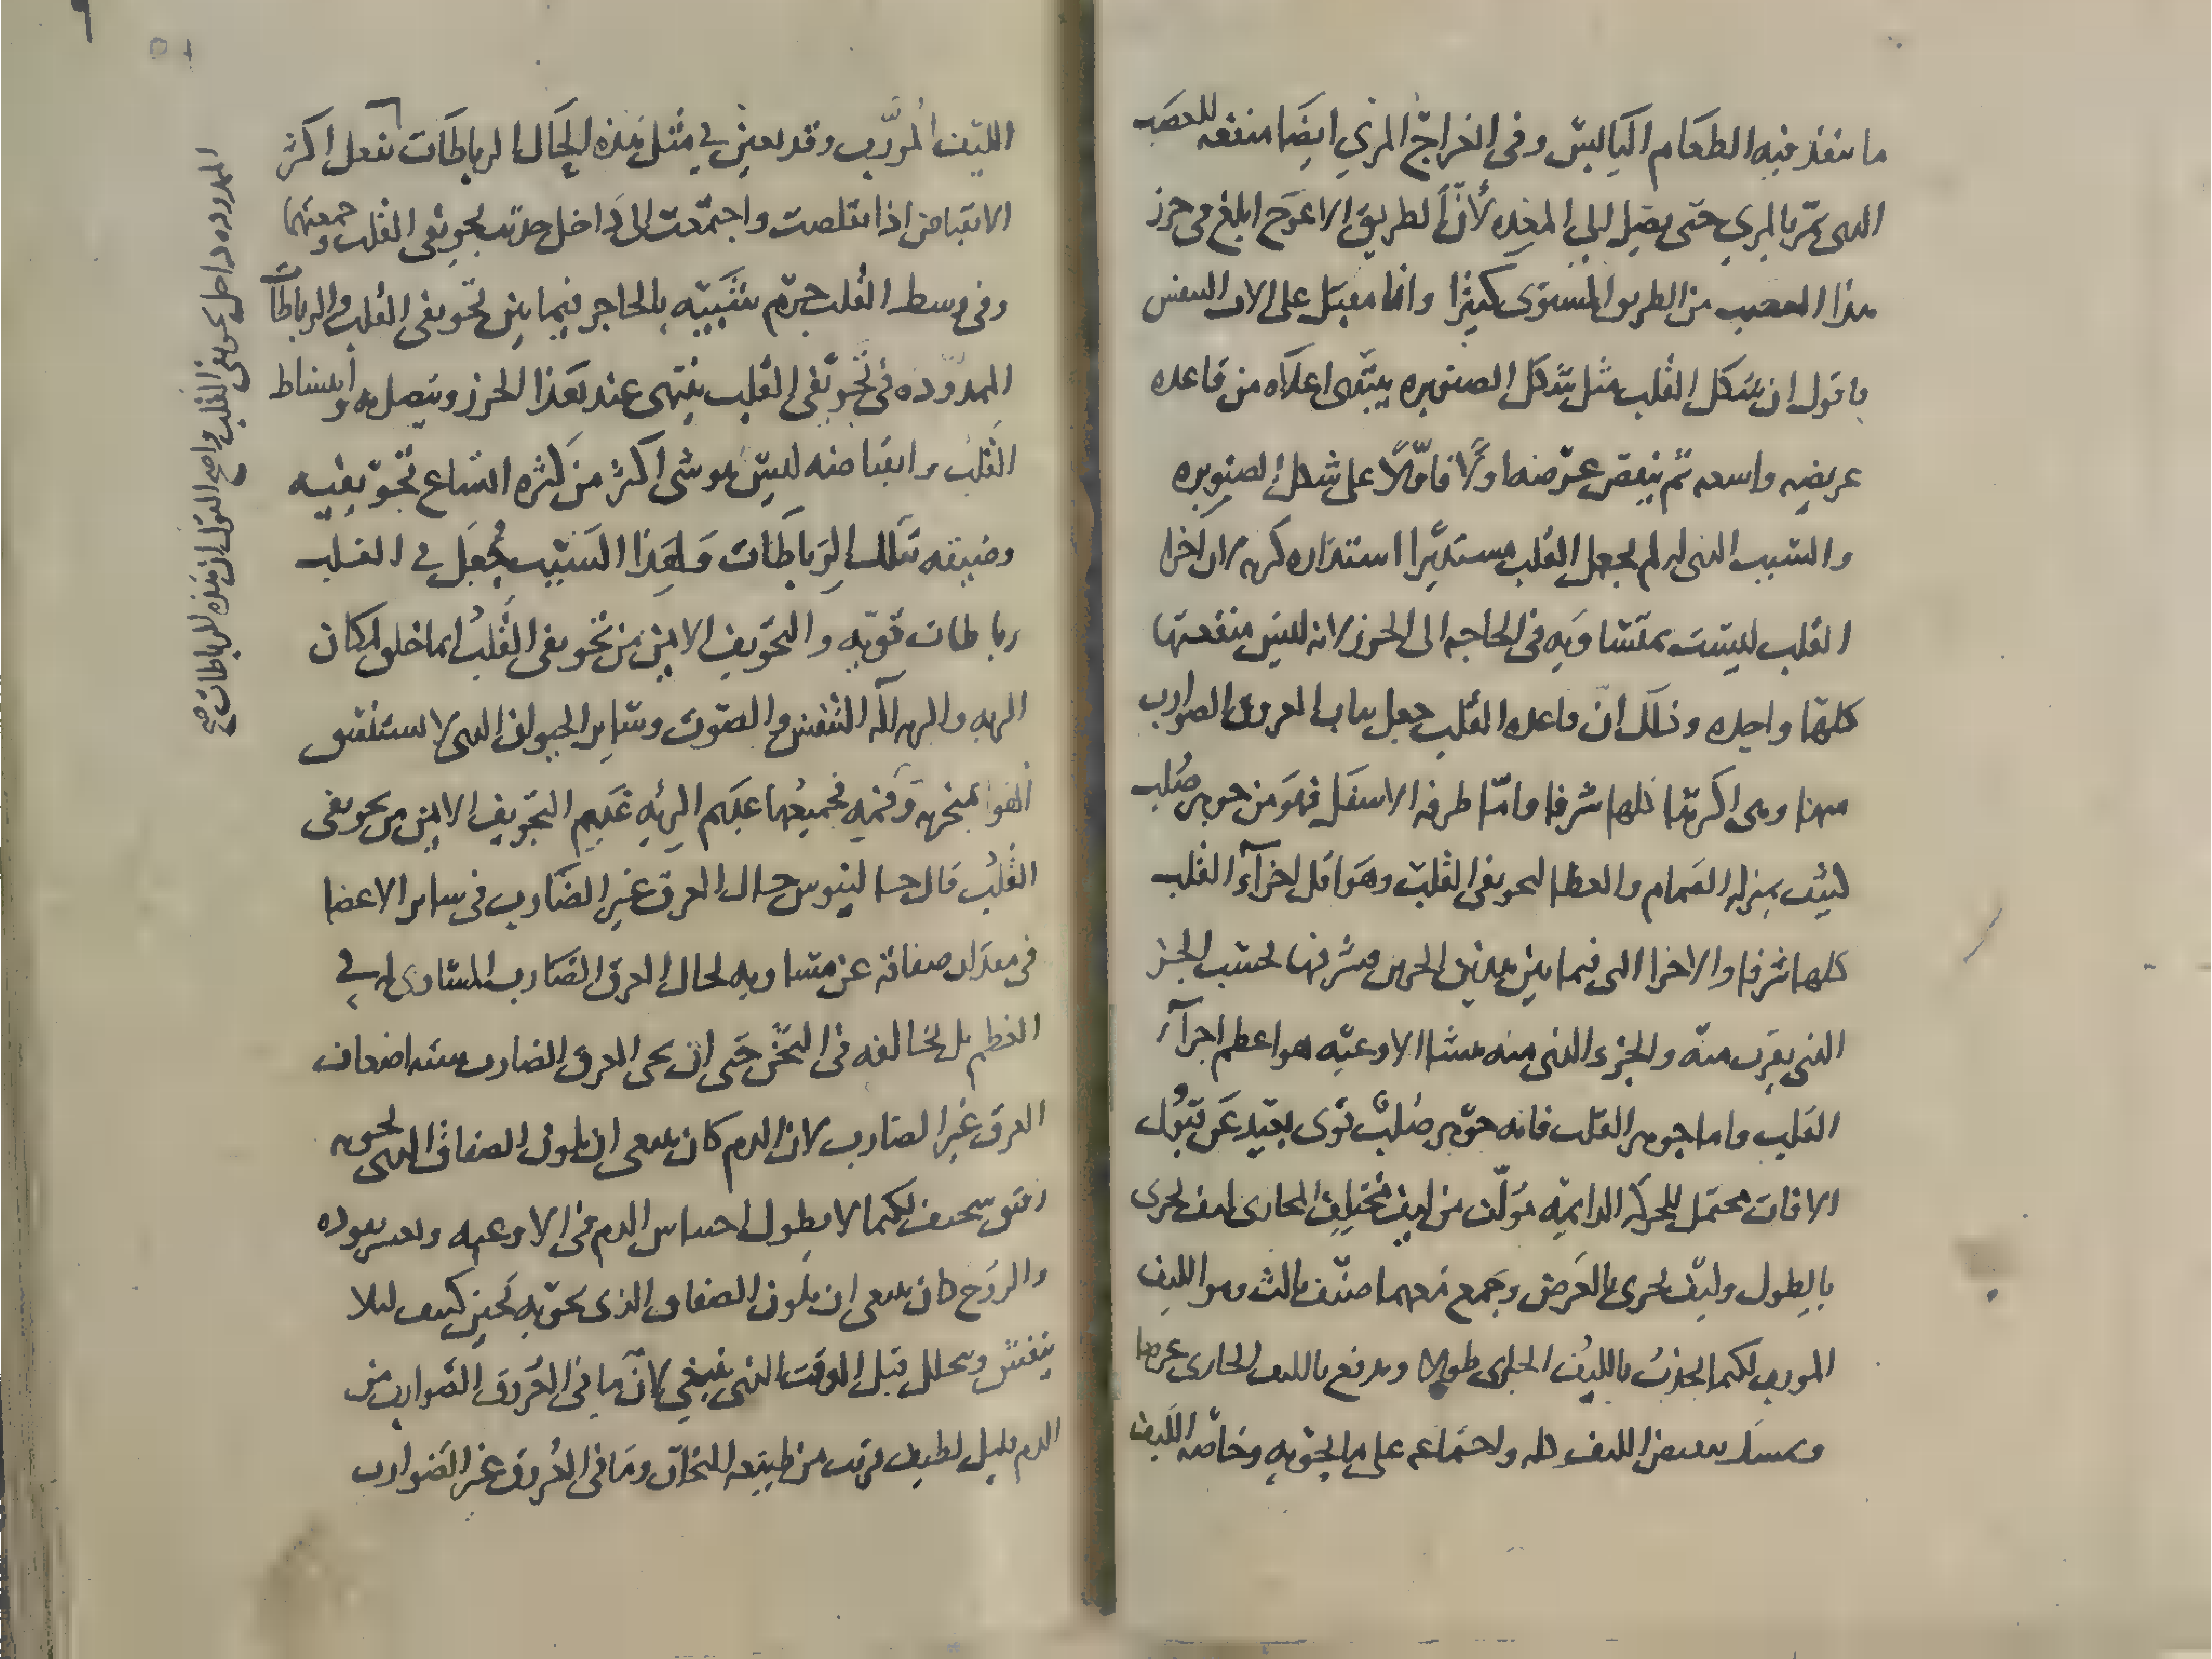 ما ينفذ فيه الطعام اليابس وفى انفراج المري ايضا منفعه للعصب
الدى يمر بالمري حتى يصل الى المعده لأن الطريق الاعوج ابلغ فى حرز
هذا العصب من الطريق المستوى كثيرا وانا مقبل على الات التنفس
فاقول ان شكل القلب مثل شكل الصنوبره يبتدى اعلاه من قاعده
عريضه واسعه ثم ينقص عرضها اولا فاولا على شكل الصنوبره
والسبب الذى له لم يجعل القلب مستديرا استداره كريه ان اجزا
القلب ليست بمتساويه فى الحاجه الى الحرز لانه ليس منفعتها
كلها واحده وذلك ان قاعده القلب جعل نبات العروق الضوارب
منها وهى اكرمها كلها شرفا واما طرفه الاسفل فهو من جوهر صلب
كثيف بمنزله الصمام والغطا لتجويفى القلب وهو اقل اجزآء القلب
كلها شرفا والاجزا التى فيما بين هذين الجزين فشرفها بحسب الجز
الذى يقرب منه والجزء الذى منه منشا الاوعيه هو اعظم اجزآء
القلب واما جوهر القلب فانه جوهر صلب قوى بعيد عن قبول
الافات محتمل للحركه الدايمه مؤلف من ليف مختلف المجارى ليف يجرى
بالطول وليف يجرى بالعرض وجمع معهما صنف ثالث وهو الليف
المورب لكيما يجذب بالليف الجارى طولا ويدفع بالليف الجارى عرضا
ويمسك ببعض الليف كله واجتماعه على ما يحويه وخاصه الليف
الليف المورب وقد يعين فى مثل هذه الحال الرباطات بفعل اكثر
الانقباض اذا تقلصت واجتمعت الى داخل جذبت تجويفى القلب وجمعتهما
وفى وسط القلب جرم شبيه بالحاجز فيما بين تجويفى القلب والرباطات
الممدوده فى تجويفى القلب ينتهى عند هذا الحرز ويتصل به وانبساط
القلب وانقباضه ليس هو شى اكثر من كثره اتساع تجويفيه
وضيقه تلك الرباطات ولهذا السبب جعل فى القلب
رباطات قويه والتجويف الايمن من تجويفى القلب انما خلق لمكان
الريه والريه آله التنفس والصوت وساير الحيوان الدى لا يستنشق
الهوا بمنخريه وفمه فجميعها عديم الريه عديم التجويف الايمن من تجويفى
القلب قال جالينوس حال العرق غير الضارب فى ساير الاعضا
فى مقدار صفاقه غير مساويه لحال العرق الضارب المساوى له فى
العظم بل يخالفه فى الثخن حتى ان ثخن العرق الضارب سته اضعاف
العرق غير الضارب لان الدم كان ينبغى ان يكون الصفاق الدى يحويه
رقيق سخيف لكيما لا يطول احتباس الدم فى الاوعيه ويعسر نفوده
والروح كان ينبغى ان يكون الصفاق الذى يحويه ثخين كثيف ليلا
ينفش ويتحلل قبل الوقت الذى ينبغي لان ما فى العروق الضوارب من
الدم قليل لطيف قريب من طبيعه البخار وما فى العروق غير الضوارب
الممدوده داخل تجويفى القلب واضح القول ان هذه الرباطات صح